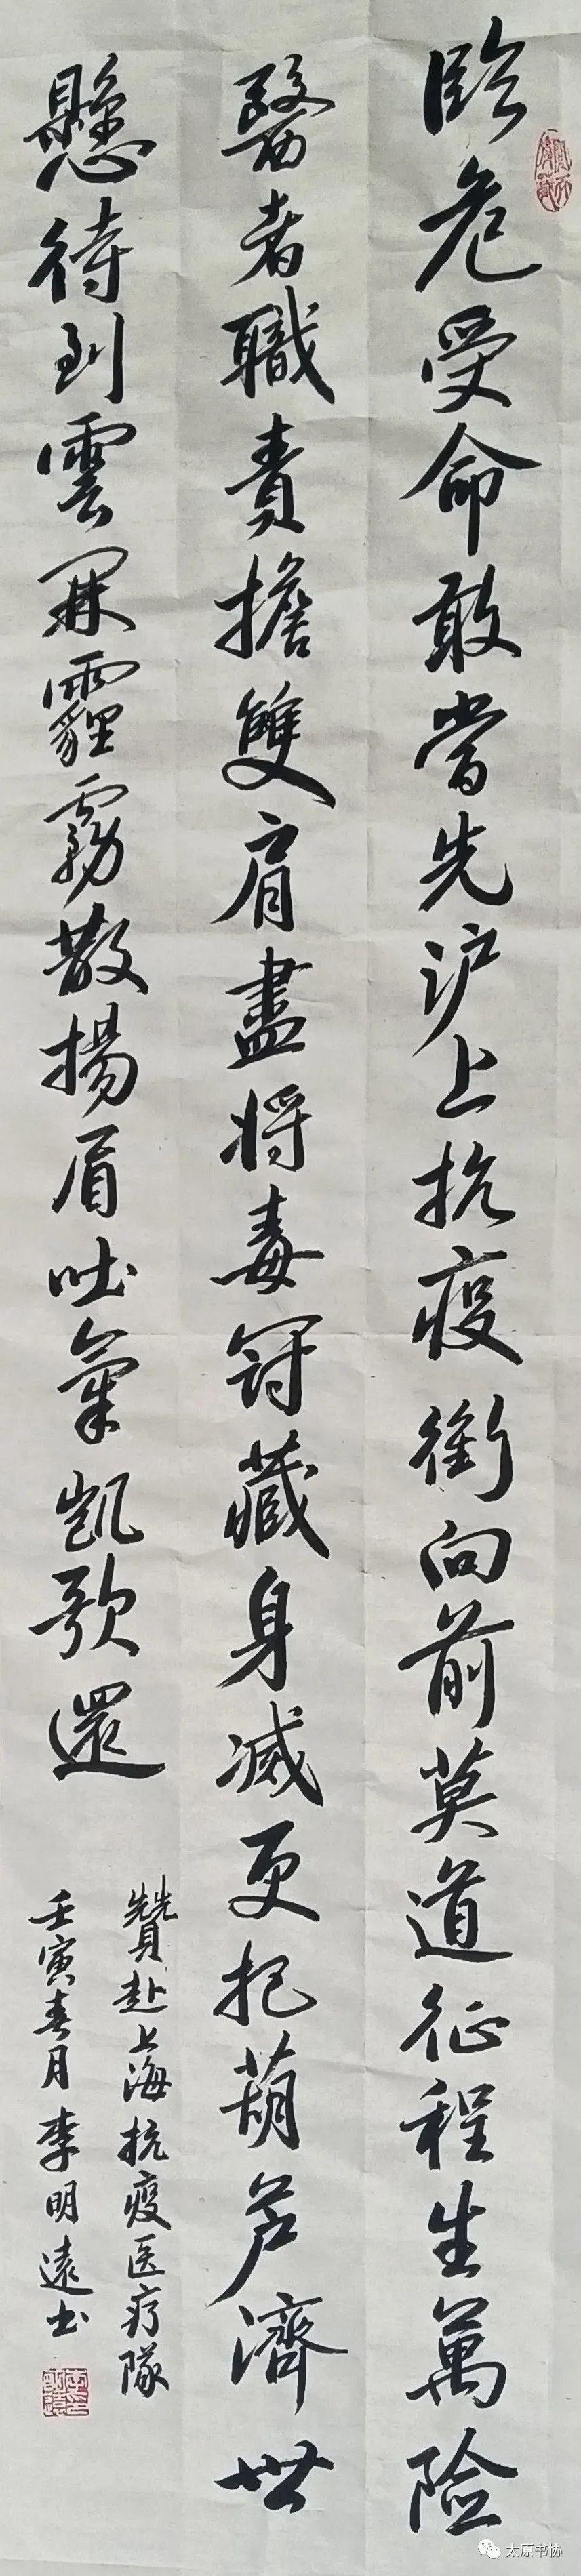 臨危受命敢當先沪上抗疫衝向前莫道征程生萬险
醫者職責擔雙肩盡将毒寇藏身滅更把葫芦濟世
懸待到雲開霾霧散揚眉吐氣凯歌還
贊赴上海抗疫医疗隊
壬寅春月李明遠书
太原书协